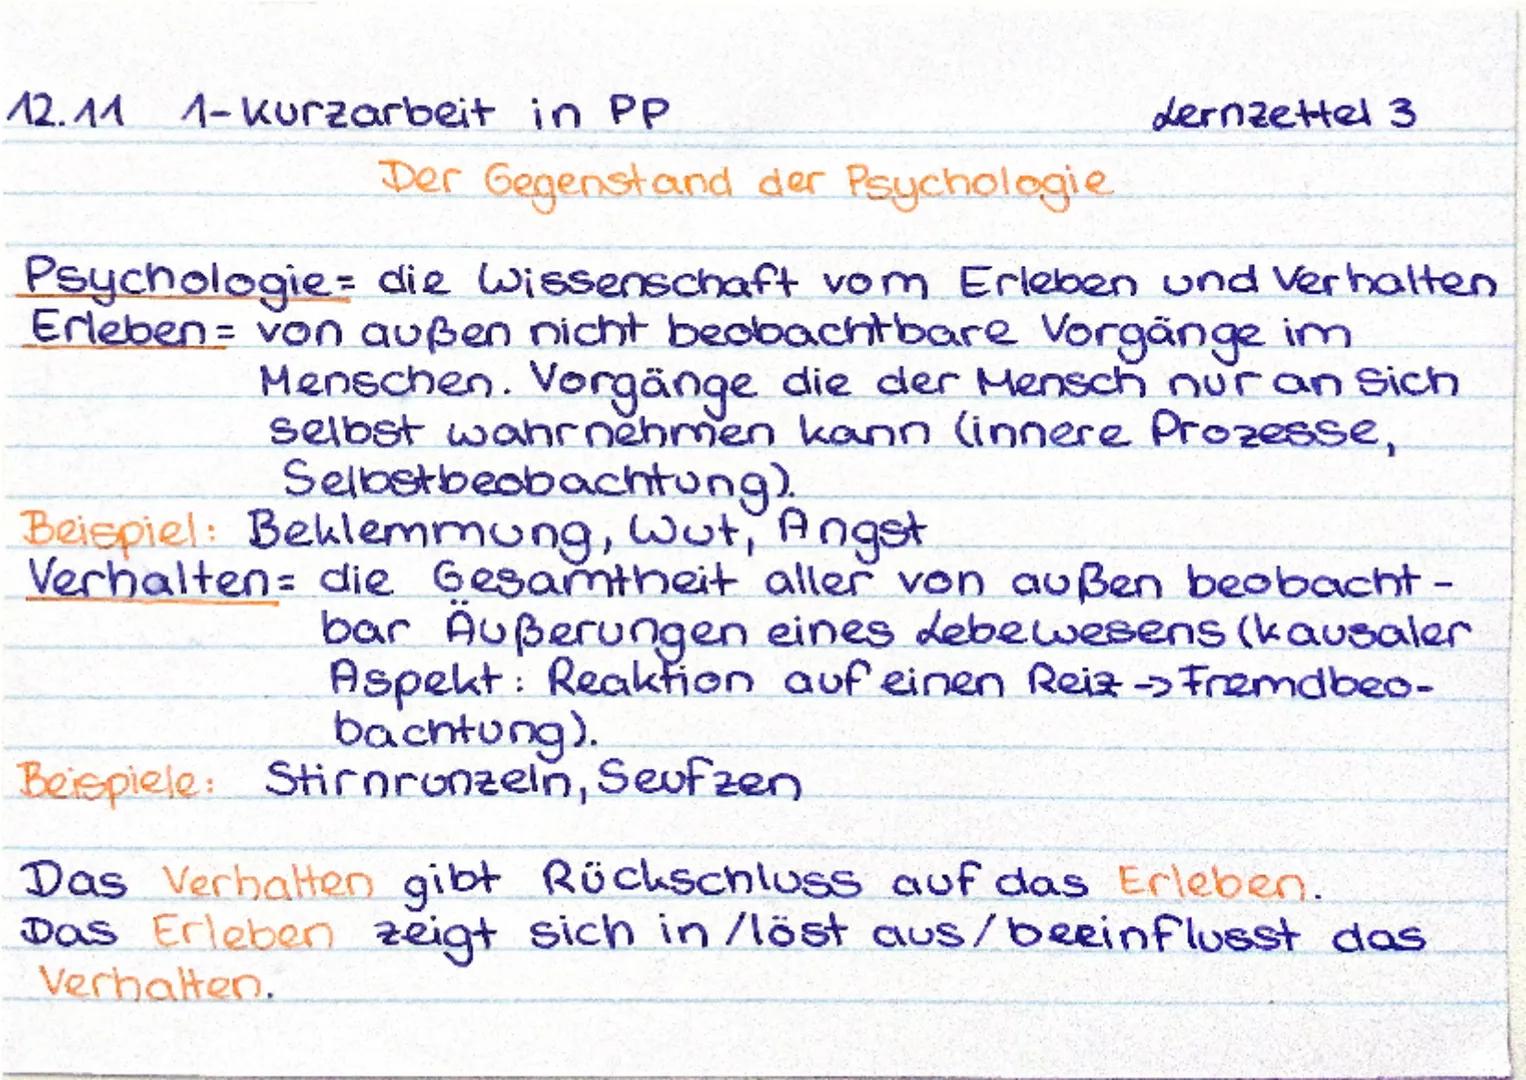 12.11 1-Kurzarbeit in PP Lernzettel 3
Der Gegenstand der Psychologie
Psychologie= die Wissenschaft vom Erleben und Verhalten
Erleben= von außen nicht beobachtbare Vorgänge im
Menschen. Vorgänge die der Mensch nur an sich
selbst wahrnehmen kann (innere Prozesse,
Selbstbeobachtung).
Beispiel: Beklemmung, Wut, Angst
Verhalten= die Gesamtheit aller von außen beobacht-
bar Äußerungen eines Lebewesens (kausaler
Aspekt: Reaktion auf einen Reiz → Fremdbeo-
bachtung).
Beispiele: Stirnrunzeln, Seufzen
Das Verhalten gibt Rückschluss auf das Erleben.
Das Erleben zeigt sich in /löst aus/beeinflusst das
Verhalten.